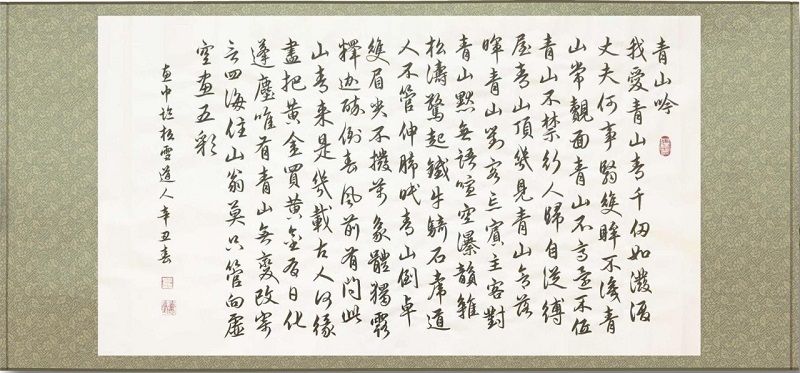 青山吟
我愛青山青千仞如潑
丈夫何事翳雙眸不後青
山常覿面青山不高還不低
青山不禁行人歸自從縛
屋青山頂幾見青山含落
暉青山對客忘賓主客對
青山默無語喧空瀑韻雜
松濤驚起鐵牛石席道
人不管伸腳眠青山倒卓
雙眉尖不撥萬象體獨露
釋迦醉倒春風前有問此
山青來是幾載古人何緣
盡把黃金買黃金有日化
蓬塵唯有青山無變改寄
言四海住山翁莫只管向虛
空畫五彩
松雪道人辛丑春